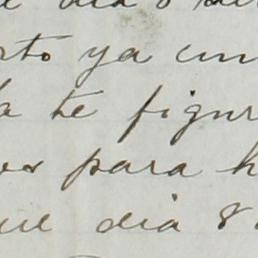 dia 8
rto ya un
a te figur
er para h
que dia 8